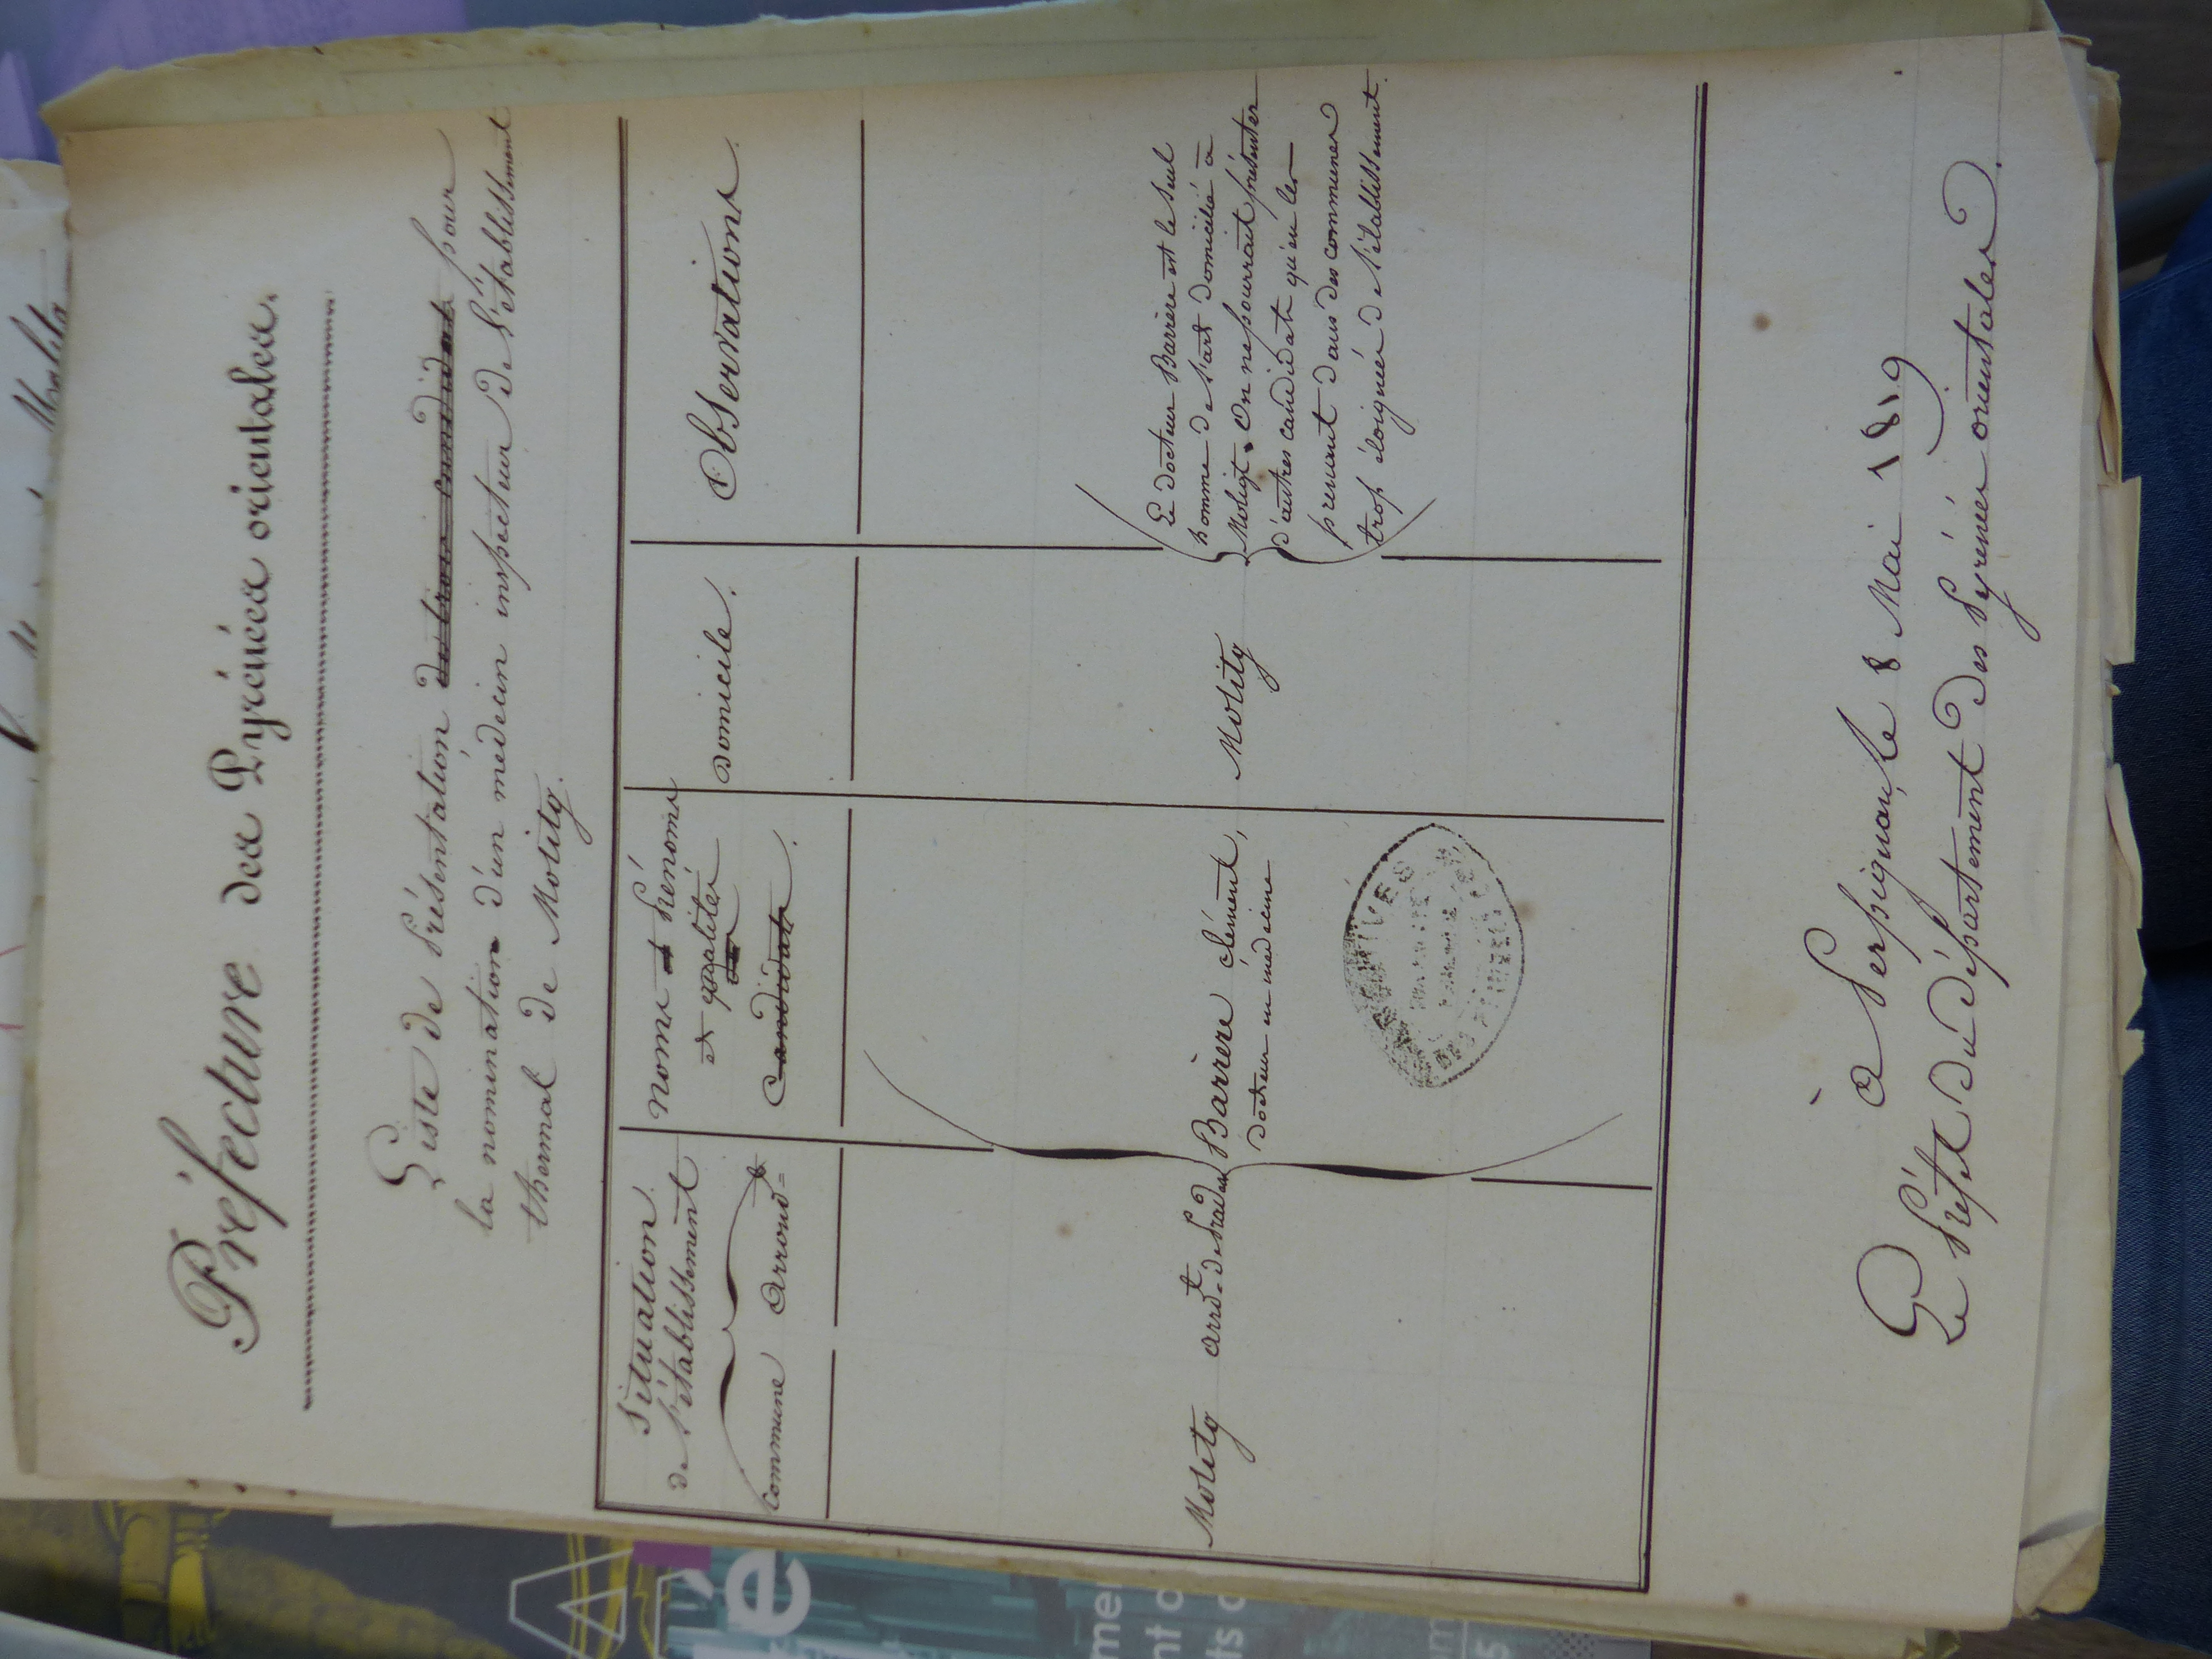 Préfecture des Pyrénées orientales.
Liste de Présentation de trois candidats pour
la nomination d'un médecin inspecteur de l'établissement
thermal de Molitg.
Situation
de l'établissement
Commune Arrond=t
Noms et Prénoms
et qualités
des
Candidats.
Domicile.
Observations.
Molitg arrd.t de Prades
Barrère Clément,
Docteur en médecine
Molitg
Le docteur Barrère est le seul
homme de l'art domicilié à
Molitg. On ne pourrait présenter
d'autres candidats qu'en les
prenant dans des communes
trop éloignées de l'établissement.
ARCHIVES
à Perpignan, le 8 Mai 1819
Le Préfet du département des Pyrénées orientales.